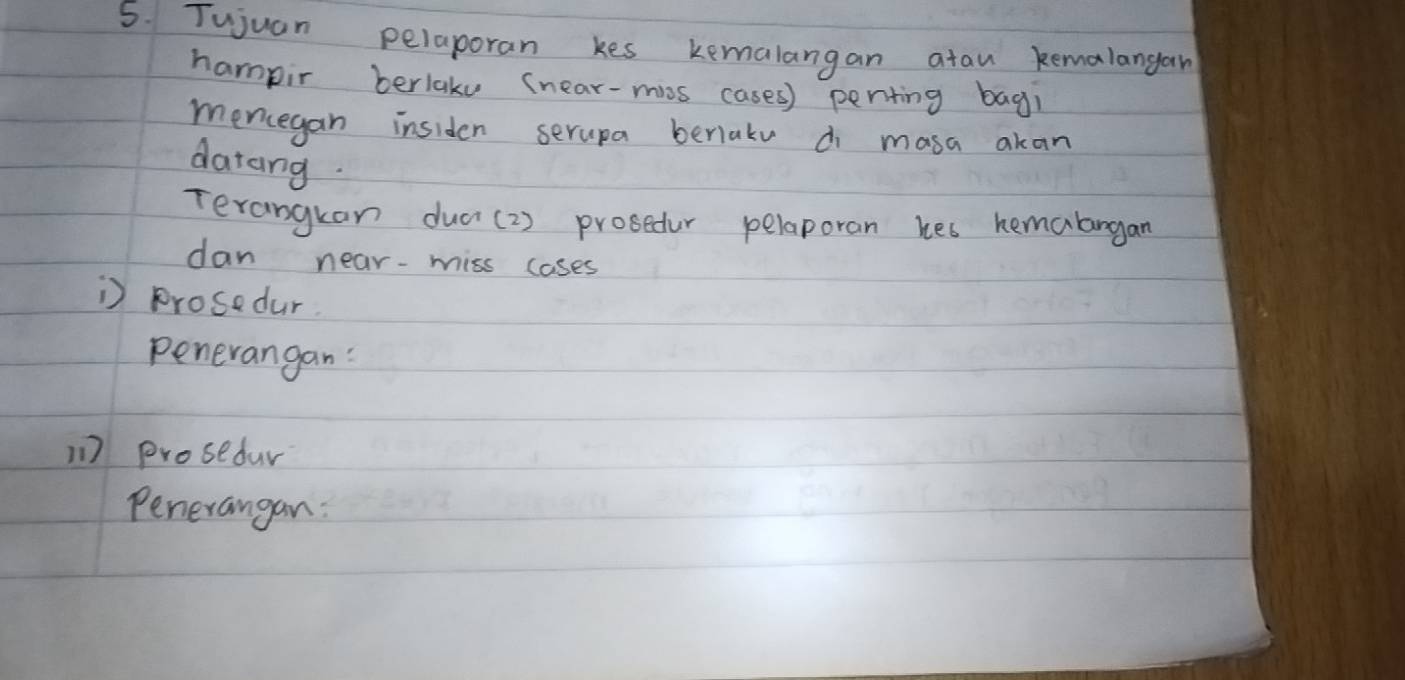 5. Tujuan pelaporan kes kemalangan atau kemalangan
hampir berlaku (near-miss cases) penting bagi
mencegan insiden serupa berlaku di masa akan
datang.
Terangkan dua (2) prosedur pelaporan kes kemalangan
dan near-miss cases
i) Prosedur:
Penerangan:
ii) Prosedur:
Penerangan: